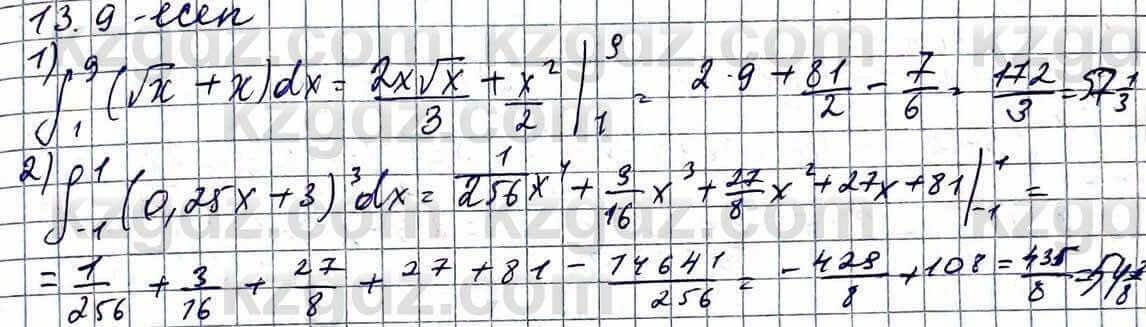 13.9 -есеп
1) ∫₁⁹ (√x + x)dx = 2x√x/3 + x²/2 |₁⁹ = 2·9 + 81/2 - 7/6 = 172/3 = 57 1/3
2) ∫₋₁¹ (0,25x + 3)³dx = 1/256 x⁴ + 3/16 x³ + 27/8 x² + 27x + 81 |₋₁¹ =
= 1/256 + 3/16 + 27/8 + 27 + 81 - 14641/256 = - 429/8 + 108 = 435/8 = 54 3/8